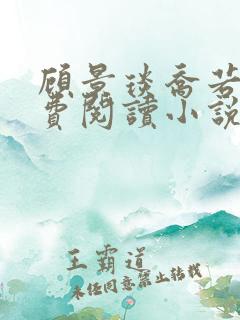 顾景琰乔若
费閱讀小說
王霸道
未经同意禁止转载